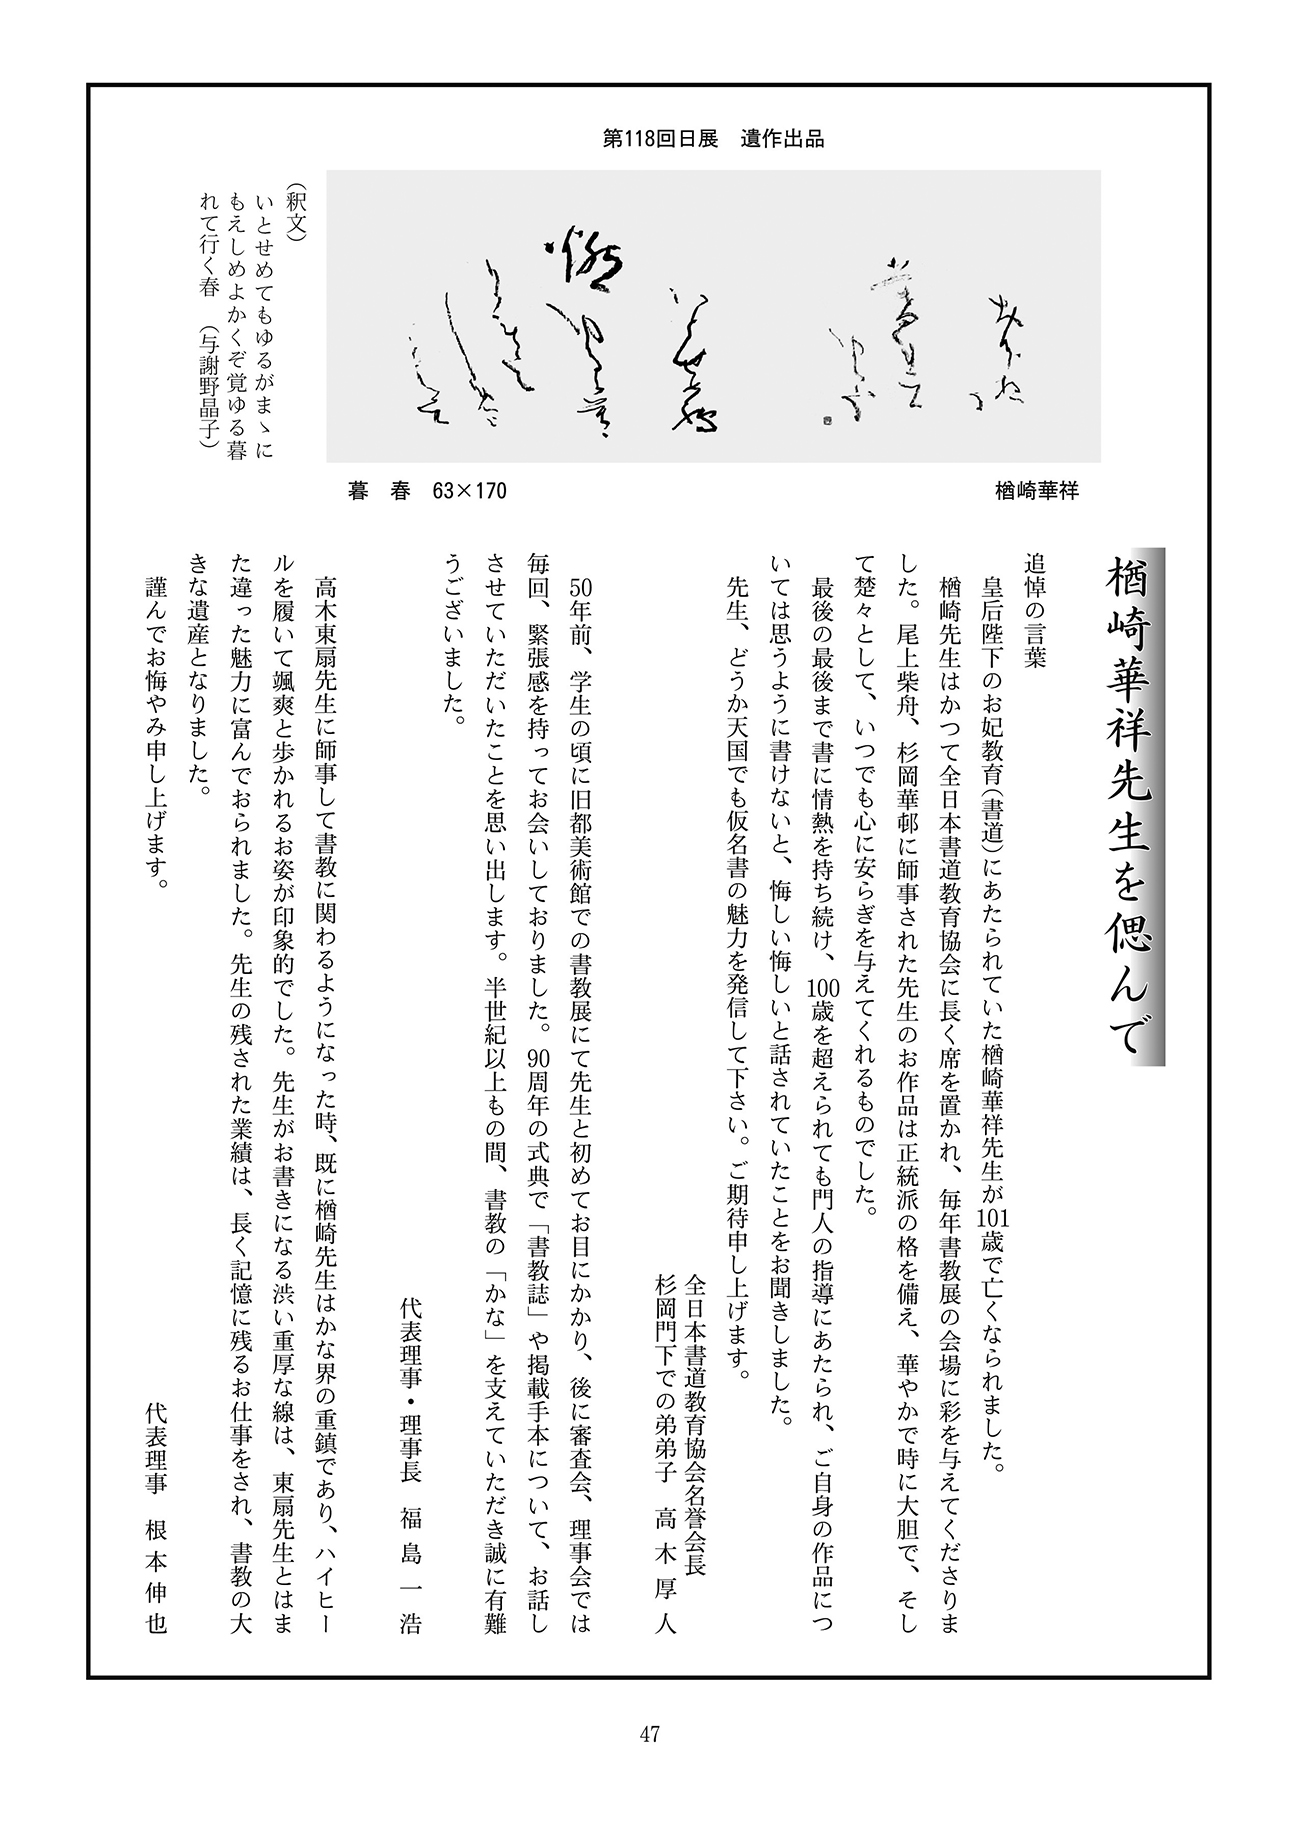 第118回日展　遺作出品
楢崎華祥
暮　春　63×170
（釈文）
いとせめてもゆるがまゝに
もえしめよかくぞ覚ゆる暮
れて行く春　（与謝野晶子）
楢崎華祥先生を偲んで
追悼の言葉
皇后陛下のお妃教育（書道）にあたられていた楢崎華祥先生が101歳で亡くなられました。
楢崎先生はかつて全日本書道教育協会に長く席を置かれ、毎年書教展の会場に彩を与えてくださりま
した。尾上柴舟、杉岡華邨に師事された先生のお作品は正統派の格を備え、華やかで時に大胆で、そし
て楚々として、いつでも心に安らぎを与えてくれるものでした。
最後の最後まで書に情熱を持ち続け、100歳を超えられても門人の指導にあたられ、ご自身の作品につ
いては思うように書けないと、悔しい悔しいと話されていたことをお聞きしました。
先生、どうか天国でも仮名書の魅力を発信して下さい。ご期待申し上げます。
全日本書道教育協会名誉会長
杉岡門下での弟弟子　高木厚人
50年前、学生の頃に旧都美術館での書教展にて先生と初めてお目にかかり、後に審査会、理事会では
毎回、緊張感を持ってお会いしておりました。90周年の式典で「書教誌」や掲載手本について、お話し
させていただいたことを思い出します。半世紀以上もの間、書教の「かな」を支えていただき誠に有難
うございました。
代表理事・理事長　福島一浩
高木東扇先生に師事して書教に関わるようになった時、既に楢崎先生はかな界の重鎮であり、ハイヒー
ルを履いて颯爽と歩かれるお姿が印象的でした。先生がお書きになる渋い重厚な線は、東扇先生とはま
た違った魅力に富んでおられました。先生の残された業績は、長く記憶に残るお仕事をされ、書教の大
きな遺産となりました。
謹んでお悔やみ申し上げます。
代表理事　根本伸也
47